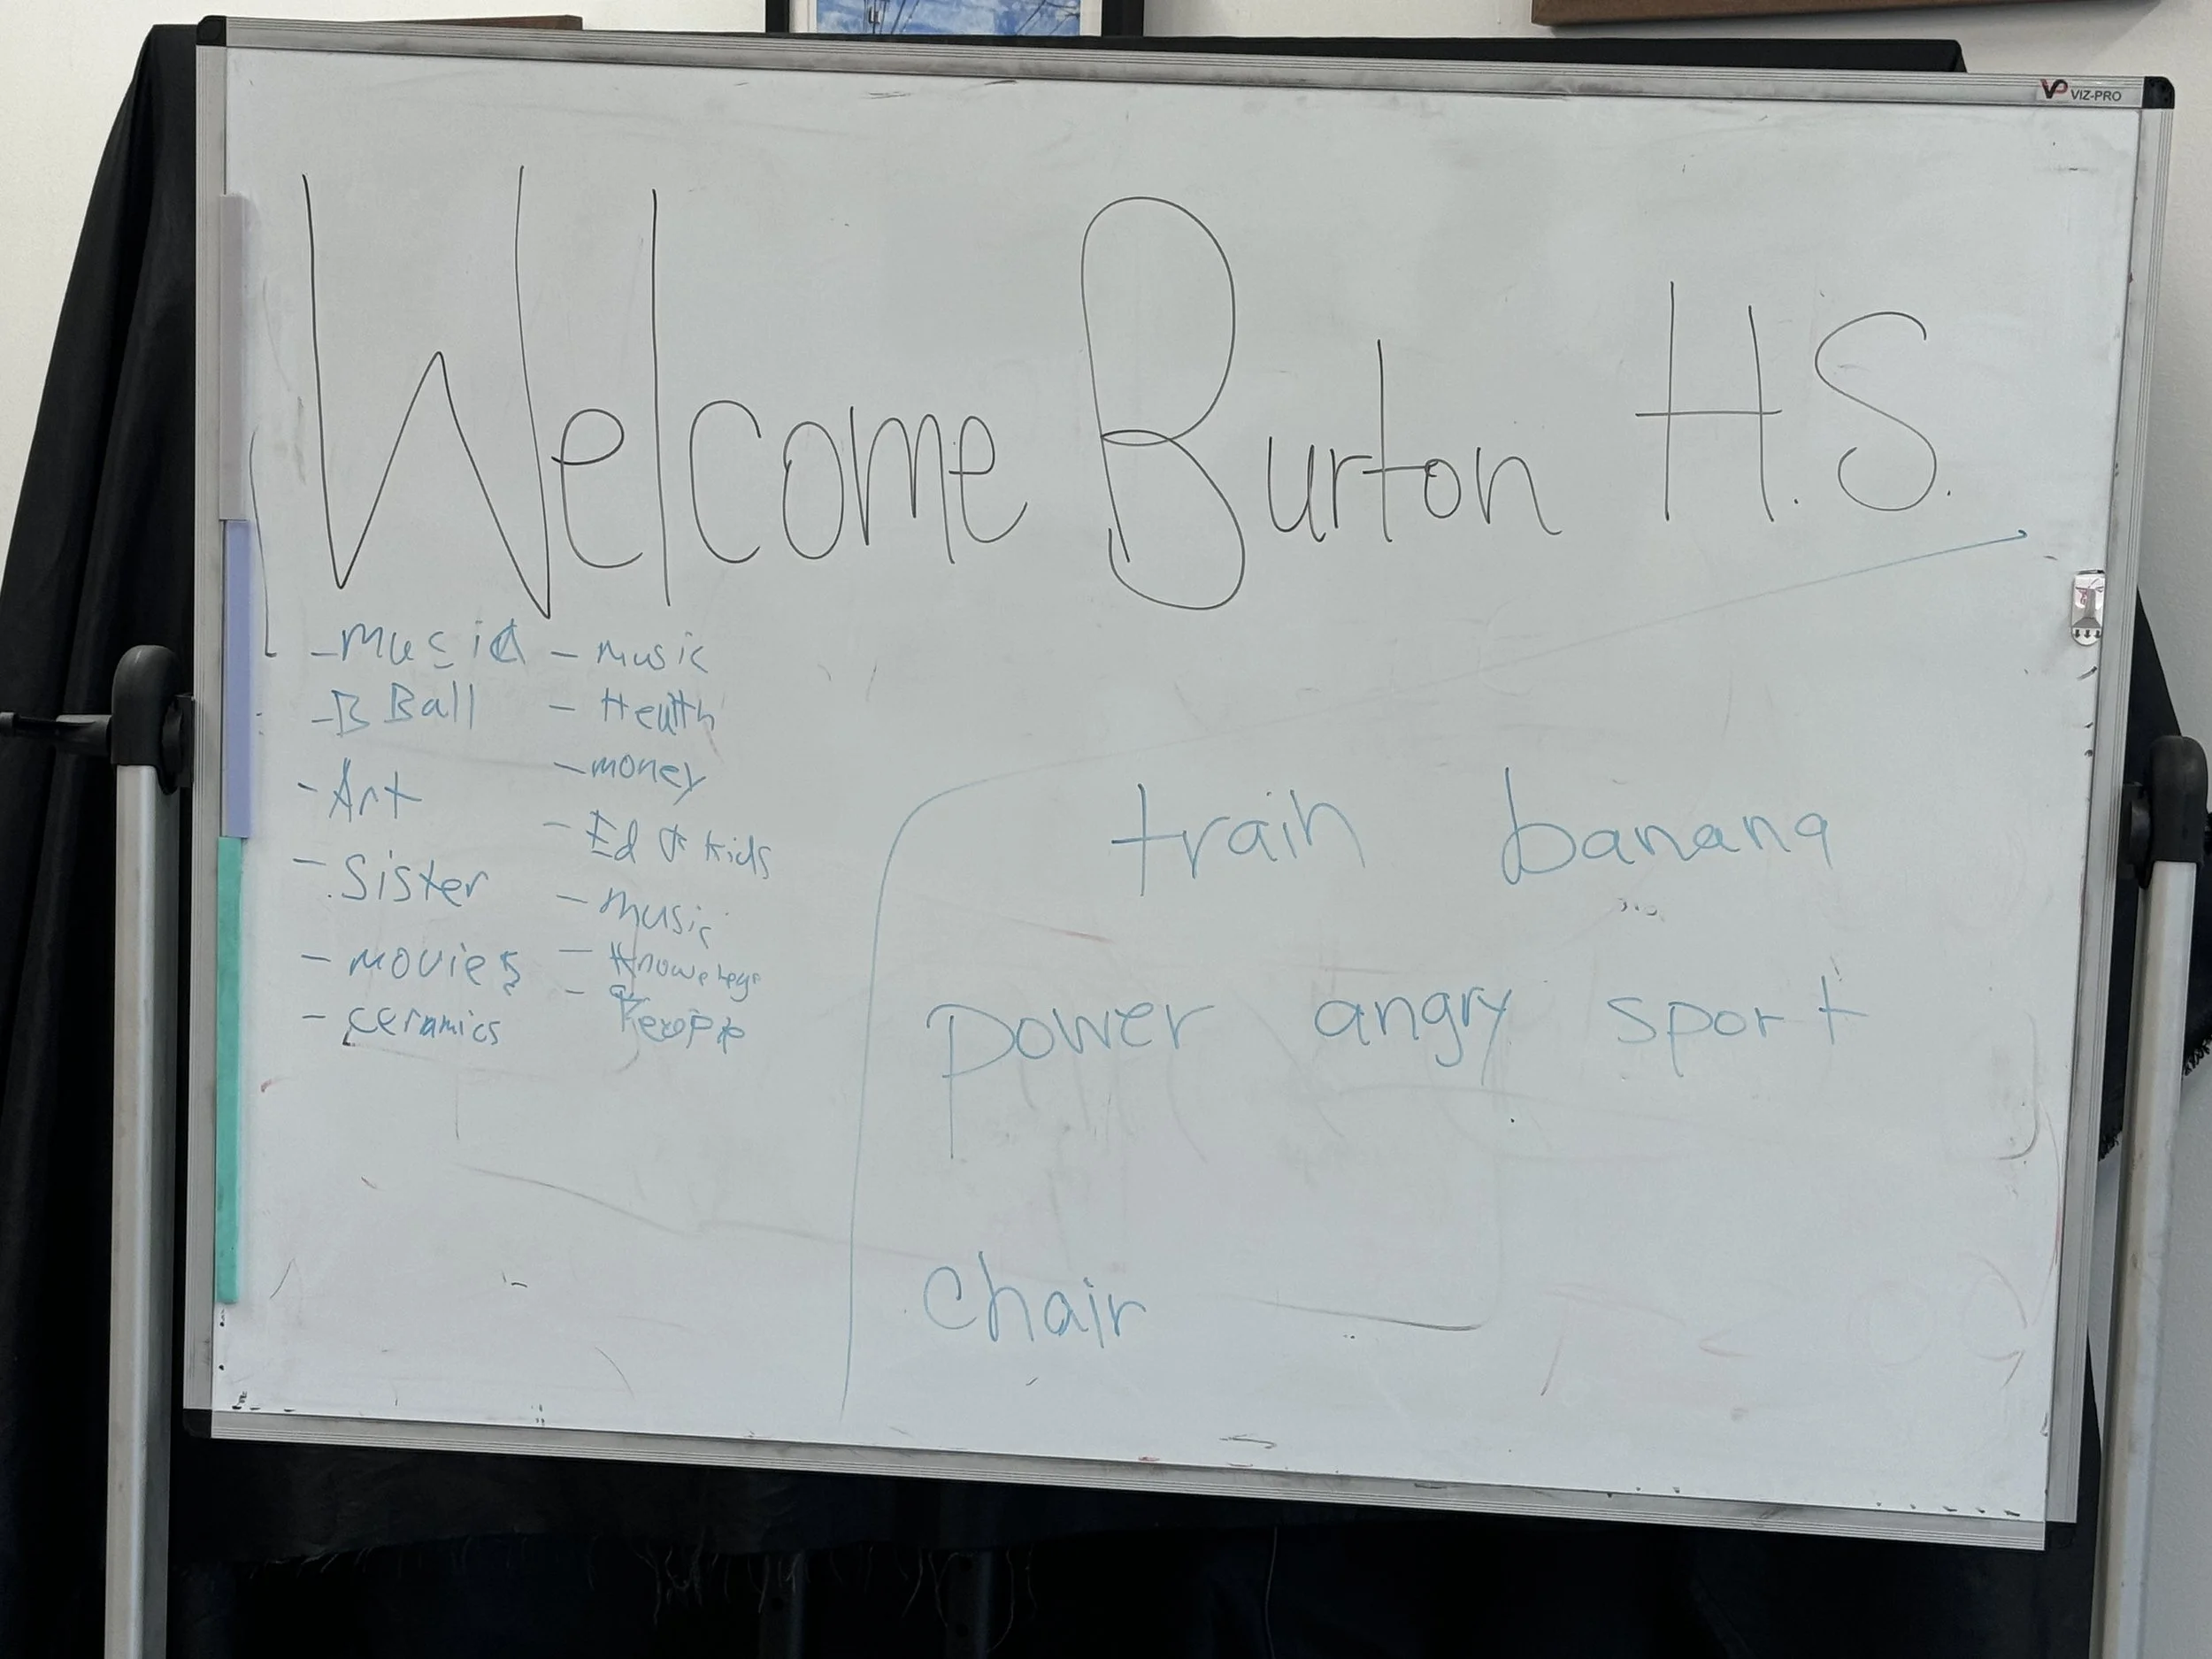 VIZ-PRO
Welcome Burton H.S.
- Music
- B Ball
- Art
- Sister
- movies
- ceramics
- music
- Health
- money
- Ed & kids
- music
train banana
power angry sport
chair